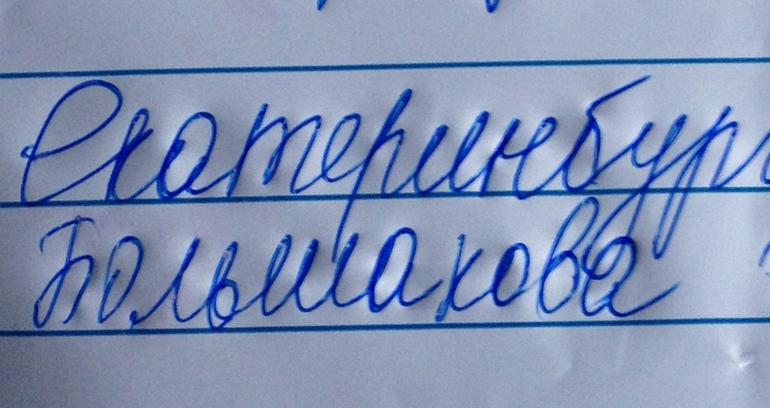 Екатеринбург
Большакова